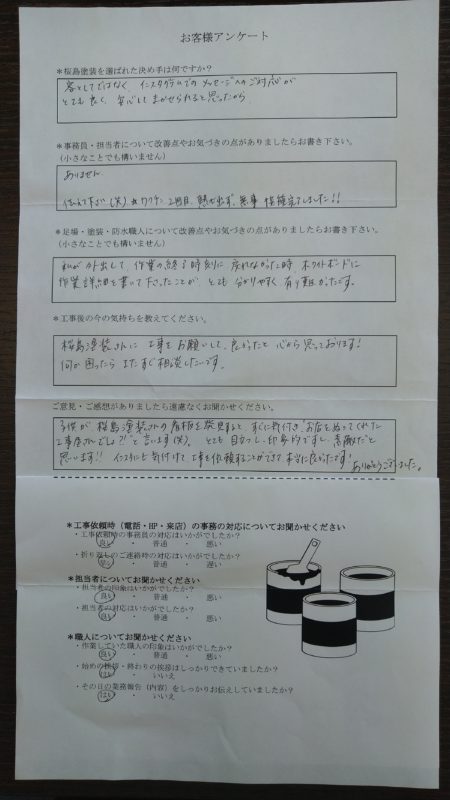 お客様アンケート
*桜島塗装を選ばれた決め手は何ですか?
客としてではなく、インスタグラムでのメッセージへのご対応が
とても良く、安心してまかせられると思ったから
*事務員・担当者について改善点やお気づきの点がありましたらお書き下さい。
(小さなことでも構いません)
ありません
伝えて下さい(笑) ワクチン2回目、熱も出ず、無事 接種完了しました!!
*足場・塗装・防水職人について改善点やお気づきの点がありましたらお書き下さい。
(小さなことでも構いません)
私が外出して、作業の終る時刻に戻れなかった時、ホワイトボードに
作業詳細を書いて下さったことが、とても分かりやすく有り難かったです。
*工事後の今の気持ちを教えてください。
桜島塗装さんに工事をお願いして、良かったと心から思っております!
何か困ったらまたすぐ相談したいです。
ご意見・ご感想がありましたら遠慮なくお聞かせください。
子供が桜島塗装さんの看板を発見すると、すぐに気付き、お店をぬってくれた
工事屋さんでしょ?!と言います(笑)。とても目立つし、印象的ですし、素敵だと
思います!! インスタにも気付けて、工事を依頼することができて本当に良かったです!
ありがとうございました。
*工事依頼時(電話・HP・来店)の事務の対応についてお聞かせください
・工事依頼時の事務員の対応はいかがでしたか?
良い ・ 普通 ・ 悪い
・折り返しのご連絡時の対応はいかがでしたか?
早い ・ 普通 ・ 遅い
*担当者についてお聞かせください
・担当者の印象はいかがでしたか?
良い ・ 普通 ・ 悪い
・担当者の対応はいかがでしたか?
良い ・ 普通 ・ 悪い
*職人についてお聞かせください
・作業していた職人の印象はいかがでしたか?
良い ・ 普通 ・ 悪い
・始めの挨拶・終わりの挨拶はしっかりできていましたか?
はい ・ いいえ
・その日の業務報告(内容)をしっかりお伝えしていましたか?
はい ・ いいえ